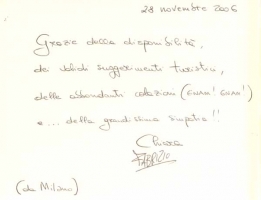 28 novembre 2006
Grazie della disponibilità,
dei validi suggerimenti turistici,
delle abbondanti colazioni (GNAM! GNAM!)
e... della grandissima simpatia!!
Chiara
FABRIZIO
(da Milano)